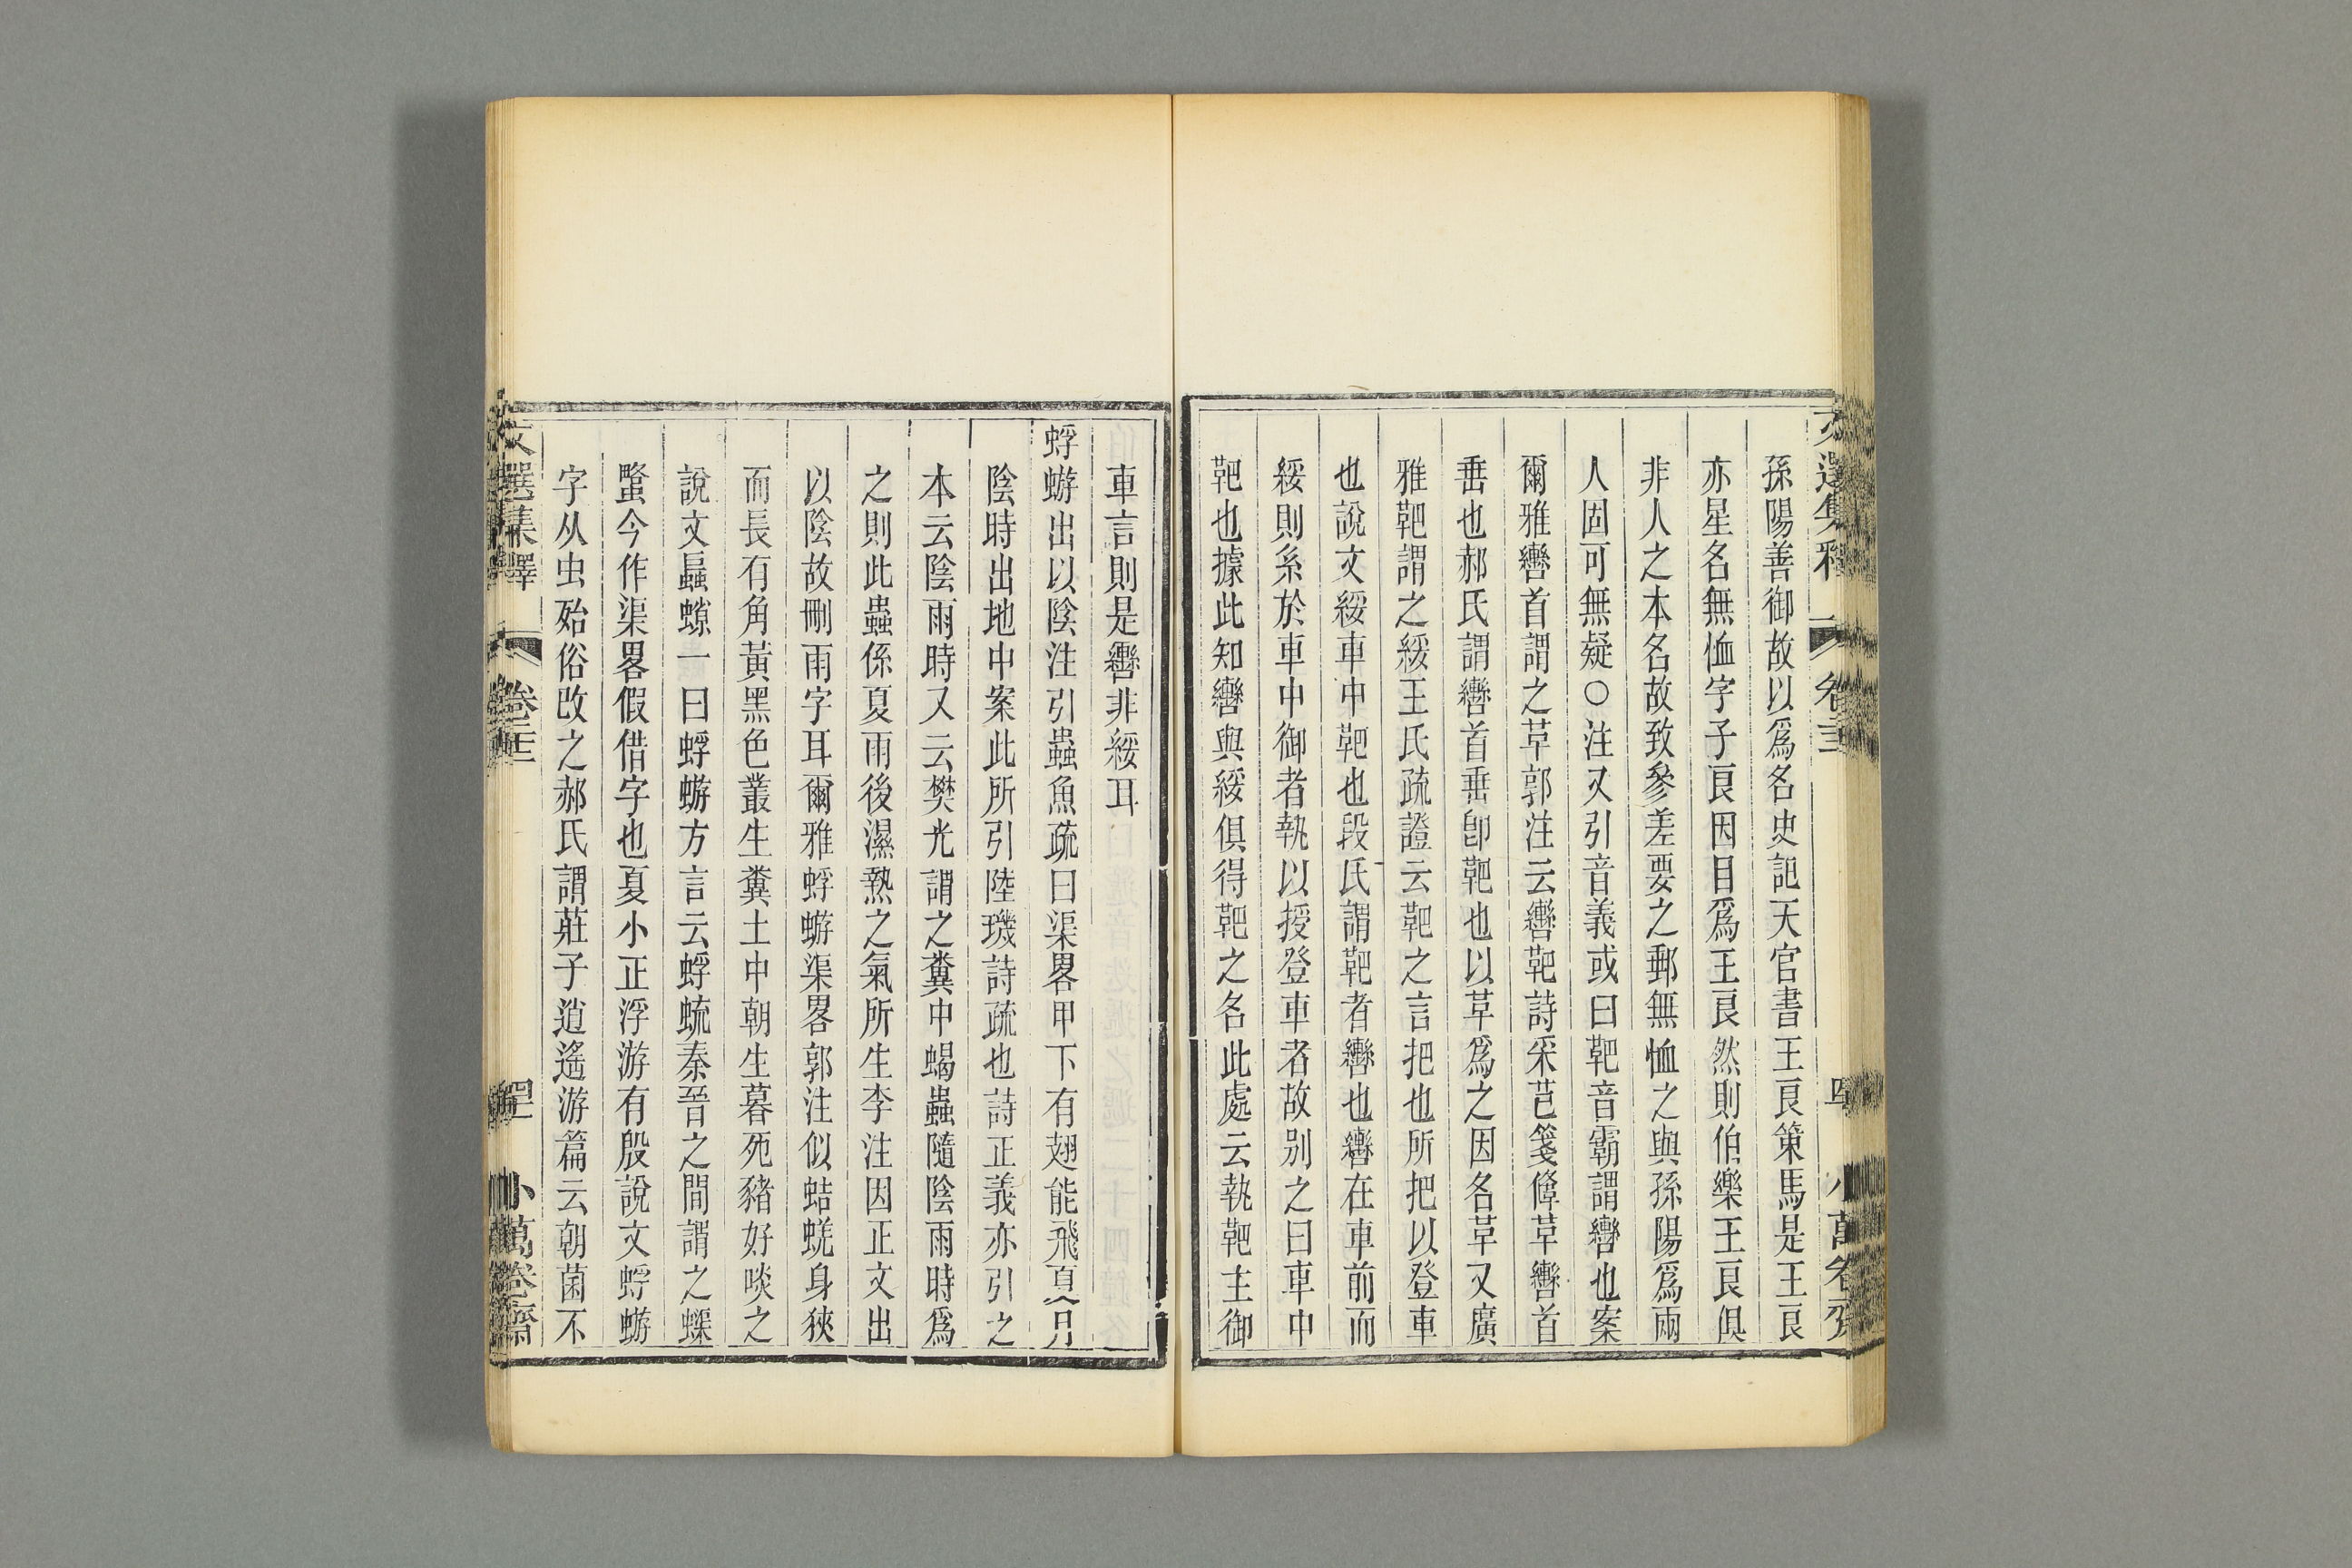 孫陽善御故以爲名史記天官書王良策馬是王良
亦星名無恤字子良因目爲王良然則伯樂王良俱
非人之本名故致參差要之郵無恤之與孫陽爲兩
人固可無疑○注又引音義或曰靶音霸謂轡也案
爾雅轡首謂之革郭注云轡靶詩采芑箋鞗革轡首
垂也郝氏謂轡首垂卽靶也以革爲之因名革又廣
雅靶謂之綏王氏疏證云靶之言把也所把以登車
也說文綏車中靶也段氏謂靶者轡也轡在車前而
綏則系於車中御者執以授登車者故別之曰車中
靶也據此知轡與綏俱得靶之名此處云執靶主御
車言則是轡非綏耳
蜉蝣出以陰注引蟲魚疏曰渠畧甲下有翅能飛夏月
陰時出地中案此所引陸璣詩疏也詩正義亦引之
本云陰雨時又云樊光謂之糞中蝎蟲隨陰雨時爲
之則此蟲係夏雨後濕熱之氣所生李注因正文出
以陰故刪雨字耳爾雅蜉蝣渠畧郭注似蛣蜣身狹
而長有角黃黑色叢生糞土中朝生暮死豬好啖之
說文蟁螶一曰蜉蝣方言云蜉𧋦秦晉之間謂之蟝
螶今作渠畧假借字也夏小正浮游有殷說文蜉蝣
字从虫殆俗改之郝氏謂莊子逍遙游篇云朝菌不
文選集釋
小萬卷齋